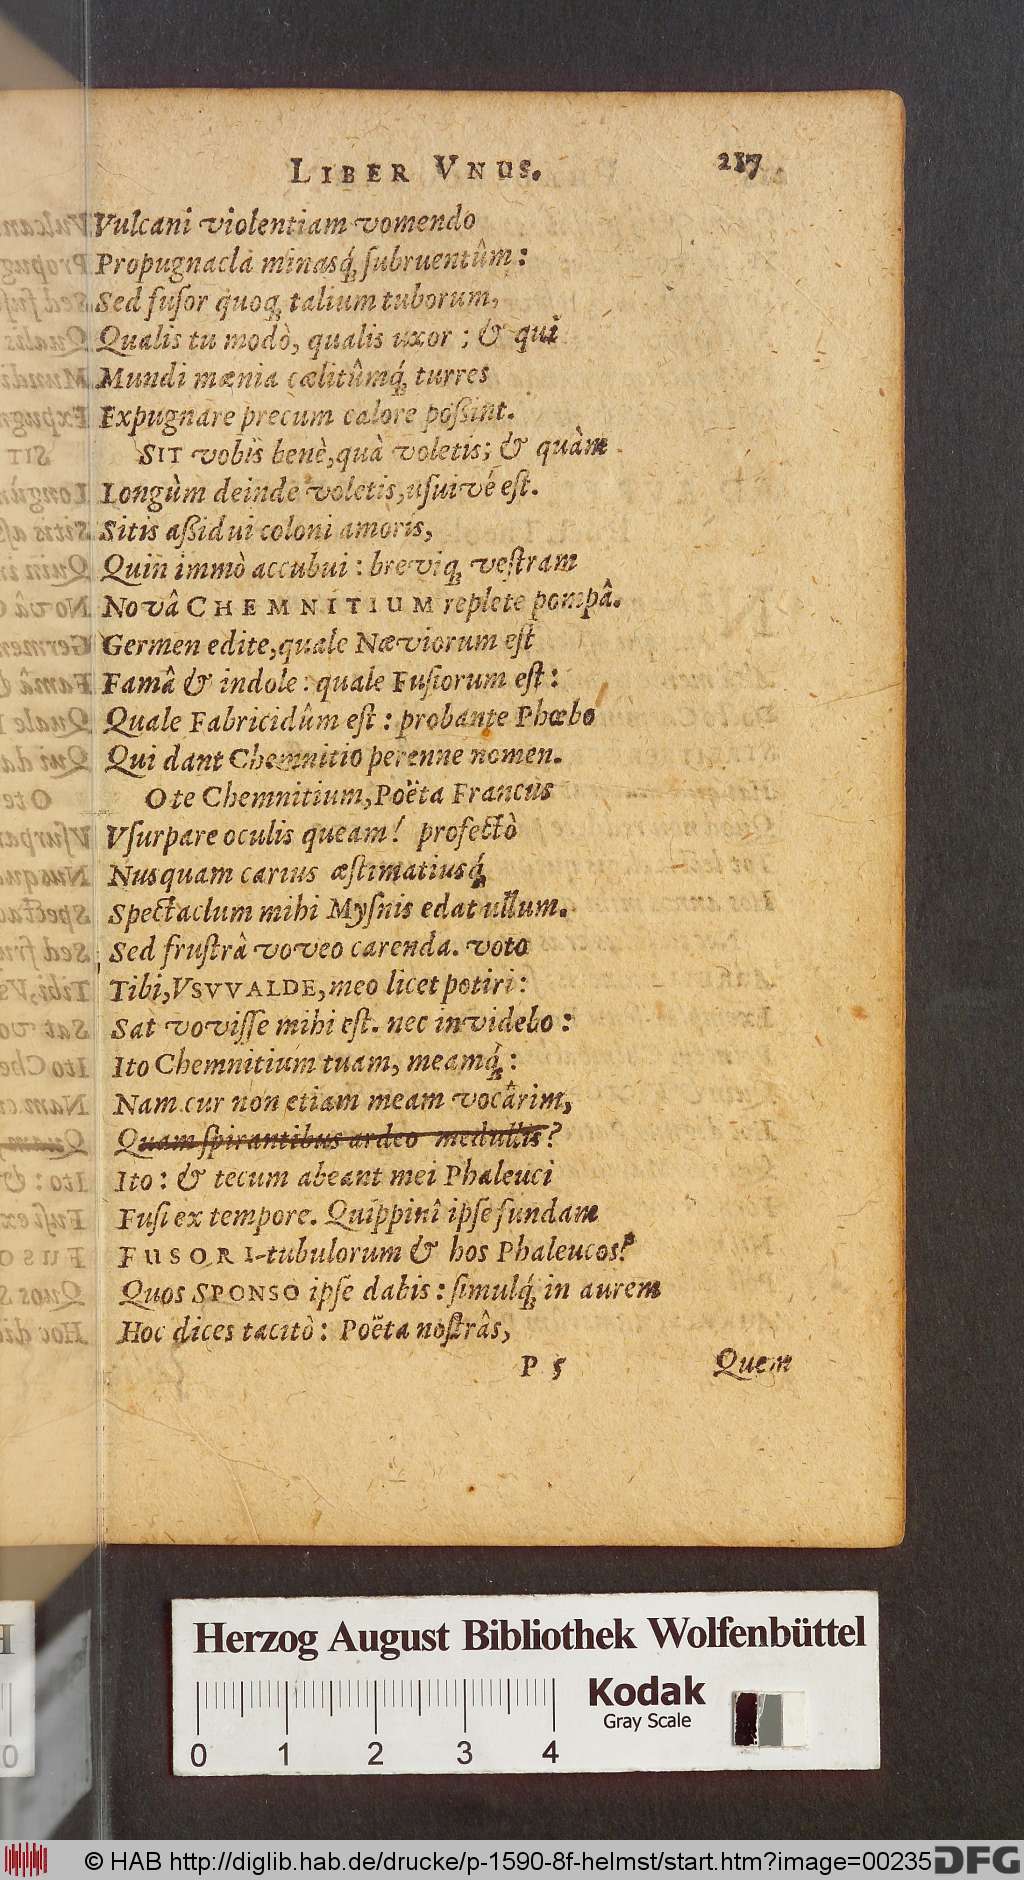 LIBER VNUS. 217
Vulcani violentiam vomendo
Propugnacla minasq́; ſubruentûm:
Sed fuſor quoq; talium tuborum,
Qualis tu modò, qualis uxor; & qui
Mundi mœnia cælitûmq́; turres
Expugnare precum calore poßint.
SIT vobis benè, quà voletis; & quàm
Longùm deinde voletis, uſuivé eſt.
Sitis aßidui coloni amoris,
Quin immò accubui: breviq; veſtram
Novâ CHEMNITIUM replete pompâ.
Germen edite, quale Næviorum eſt
Famâ & indole: quale Fuſiorum eſt:
Quale Fabricidûm eſt: probante Phœbo
Qui dant Chemnitio perenne nomen.
O te Chemnitium, Poëta Francus
Vſurpare oculis queam! profectò
Nusquam carius æſtimatiusq́;
Spectaclum mihi Myſnis edat ullum.
Sed fruſtrâ voveo carenda. voto
Tibi, VSVVALDE, meo licet potiri:
Sat voviſſe mihi eſt. nec invidebo:
Ito Chemnitium tuam, meamq́;:
Nam cur non etiam meam vocârim,
Quam ſpirantibus ardeo medullis?
Ito: & tecum abeant mei Phaleuci
Fuſi ex tempore. Quippinî ipſe fundam
FUSORI-tubulorum & hos Phaleucos?
Quos SPONSO ipſe dabis: ſimulq́; in aurem
Hoc dices tacitò: Poëta noſtrâs,
P 5 Quem
Herzog August Bibliothek Wolfenbüttel
0 1 2 3 4
Kodak
Gray Scale
© HAB http://diglib.hab.de/drucke/p-1590-8f-helmst/start.htm?image=00235
DFG